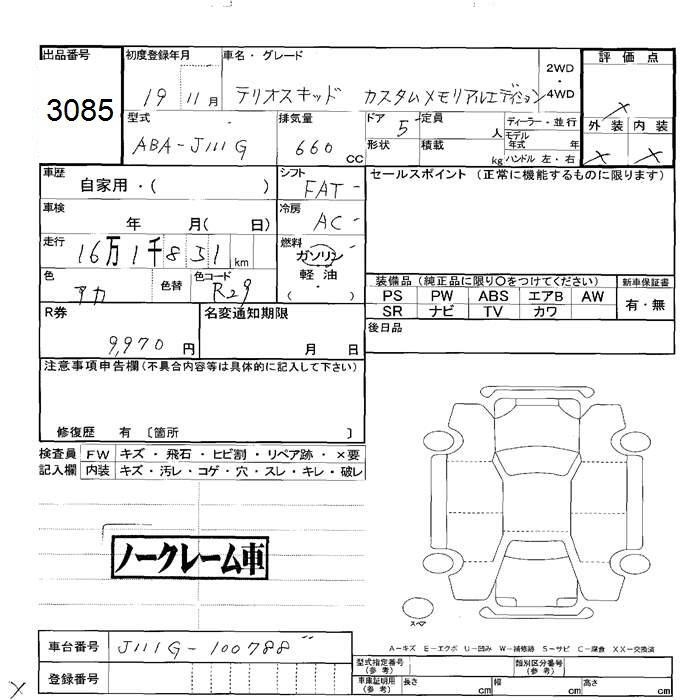 出品番号 初度登録年月 車名・グレード 評価点
3085 19 11月 テリオスキッド カスタムメモリアルエディション 2WD・4WD ×
型式 排気量 ドア 定員 ディーラー・並行 外装 内装
ABA-J111G 660 CC 5 人 モデル年式 年 × ×
形状 積載 kg ハンドル 左・右
車歴 シフト セールスポイント (正常に機能するものに限ります)
自家用・( ) FAT
車検 冷房
年 月( 日) AC
走行 燃料
16万1千851km ガソリン
色 色替 色コード 軽油
アカ R29 ・( )
装備品(純正品に限り○をつけてください) 新車保証書
PS PW ABS エアB AW 有・無
SR ナビ TV カワ
R券 名変通知期限 後日品
9,970円 月 日
注意事項申告欄(不具合内容等は具体的に記入して下さい)
修復歴 有 〔箇所 〕
検査員 FW キズ・飛石・ヒビ割・リペア跡・×要
記入欄 内装 キズ・汚レ・コゲ・穴・スレ・キレ・破レ
ノークレーム車
スペア
A-キズ E-エクボ U-凹み W-補修跡 S-サビ C-腐食 XX-交換済
車台番号 J111G-100788
登録番号
型式指定番号(参考) 類別区分番号(参考)
車庫証明用(参考) 長さ cm 幅 cm 高さ cm